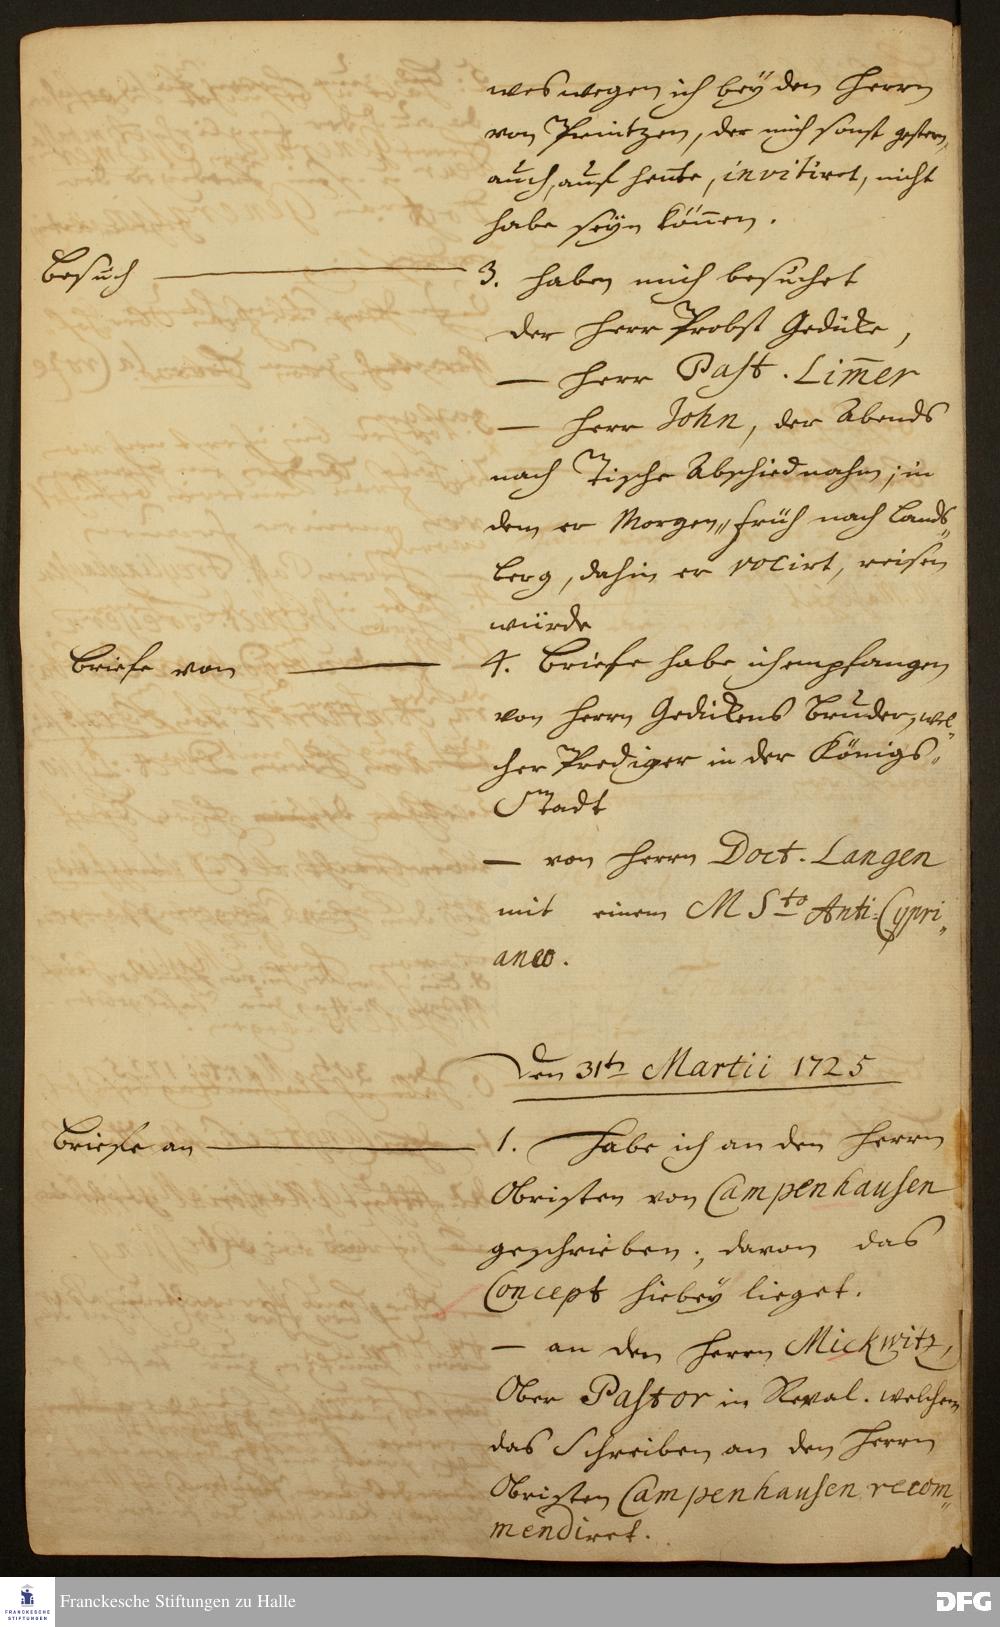 weswegen ich bey den Herrn
von Printzen, der mich sonst gestern,
auch, auf heute, invitiret, nicht
habe seyn können.
Besuch — 3. haben mich besuchet
der Herr Probst Gedicke,
— Herr Past. Lim̄er
— Herr John, der Abends
nach Tische Abschied nahm; in
dem er Morgen früh nach Lands„
berg, dahin er vocirt, reisen
würde
Briefe von — 4. Briefe habe ich empfangen
von Herrn Gedickens Bruder, wel„
cher Prediger in der Königs„
Stadt
— von Herrn Doct. Langen
mit einem MSto Anti-Cypri„
aneo.
Den 31tn Martii 1725
Briefe an — 1. Habe ich an den Herrn
Obristen von Campenhausen
geschrieben; davon das
Concept hiebey lieget.
— an den Herrn Mickwitz,
Ober Pastor in Reval. welchem
das Schreiben an den Herrn
Obristen Campenhausen recom„
mendiret.
Franckesche Stiftungen zu Halle
FRANCKESCHE
STIFTUNGEN
DFG